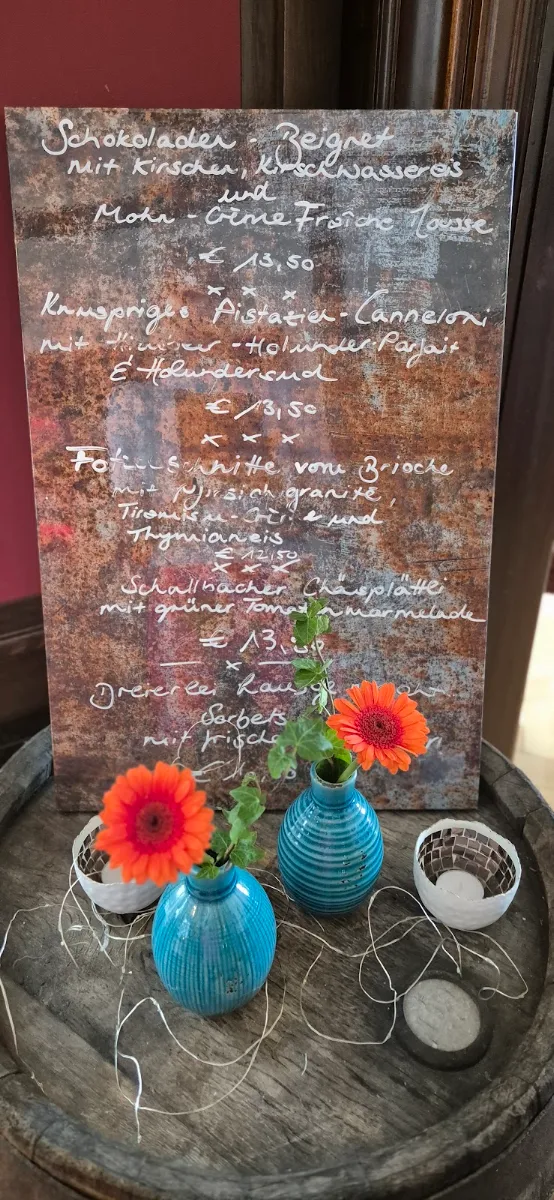 Schokoladen - Beignet
mit Kirschen, Kirschwassereis
und
Mohn - Crème Fraîche Mousse
€ 13,50
x x x
Knuspriges Pistazien - Canneloni
mit Himbeer - Holunder-Parfait
& Holundersud
€ 13,50
x x x
schnitte vom Brioche
mit Pfirsichgranité,
Tiramisu - und
Thymianeis
€ 12,50
x x x
Schallbacher Chäsplättli
mit grüner Tomatenmarmelade
€ 13,
x
Dreierlei
Sorbets
mit
€